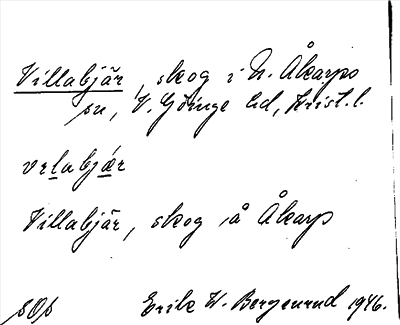 Villabjär, skog i N. Åkarps
sn, V. Göinge hd, Krist. l.
vɪlabjær
Villabjär, skog i Åkarp
Erik W. Bergenrud 1946.